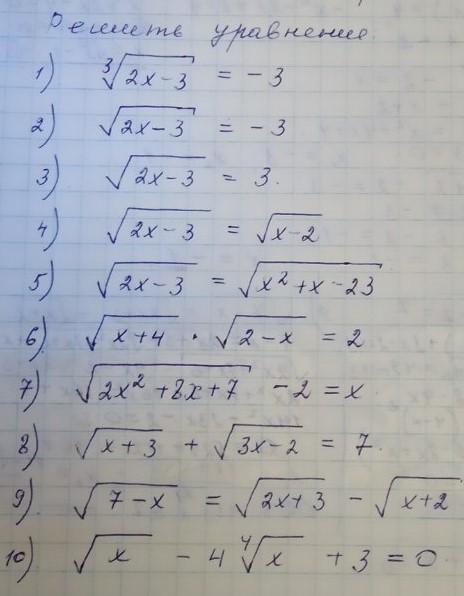 Решить уравнения.
1) ∛(2x-3) = -3
2) √(2x-3) = -3
3) √(2x-3) = 3.
4) √(2x-3) = √(x-2)
5) √(2x-3) = √(x²+x-23)
6) √(x+4) · √(2-x) = 2
7) √(2x²+8x+7) -2 = x
8) √(x+3) + √(3x-2) = 7.
9). √(7-x) = √(2x+3) - √(x+2)
10) √x - 4 ∜x + 3 = 0